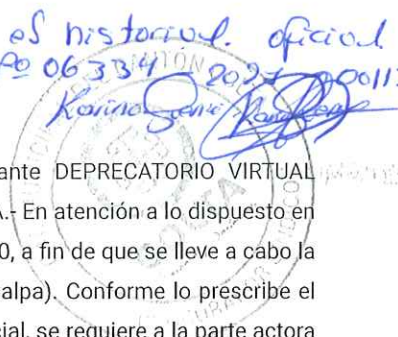 es historial. oficial
Nº 06334-202
Karina
ante DEPRECATORIO VIRTUAL
A.- En atención a lo dispuesto en
0, a fin de que se lleve a cabo la
alpa). Conforme lo prescribe el
cial, se requiere a la parte actora